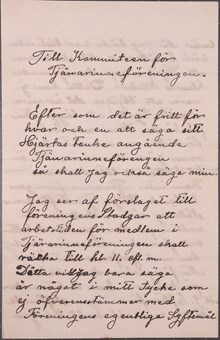 Till Kommiteen för
Tjänarinneföreningen.
Efter som det är fritt för
hvar och en att säga sitt
Hjärtas tanke angående
Tjänarinneförengen
så skall jag också säga min.
Jag ser af förslaget till
föreningens Stadgar att
arbetstiden för medlem i
Tjänarinneföreningen skall
räcka till kl. 11. eft. m.
Detta vill jag bara säga
är något i mitt tycke som
ej öfverensstämmer med
Föreningens egentliga Syftemål